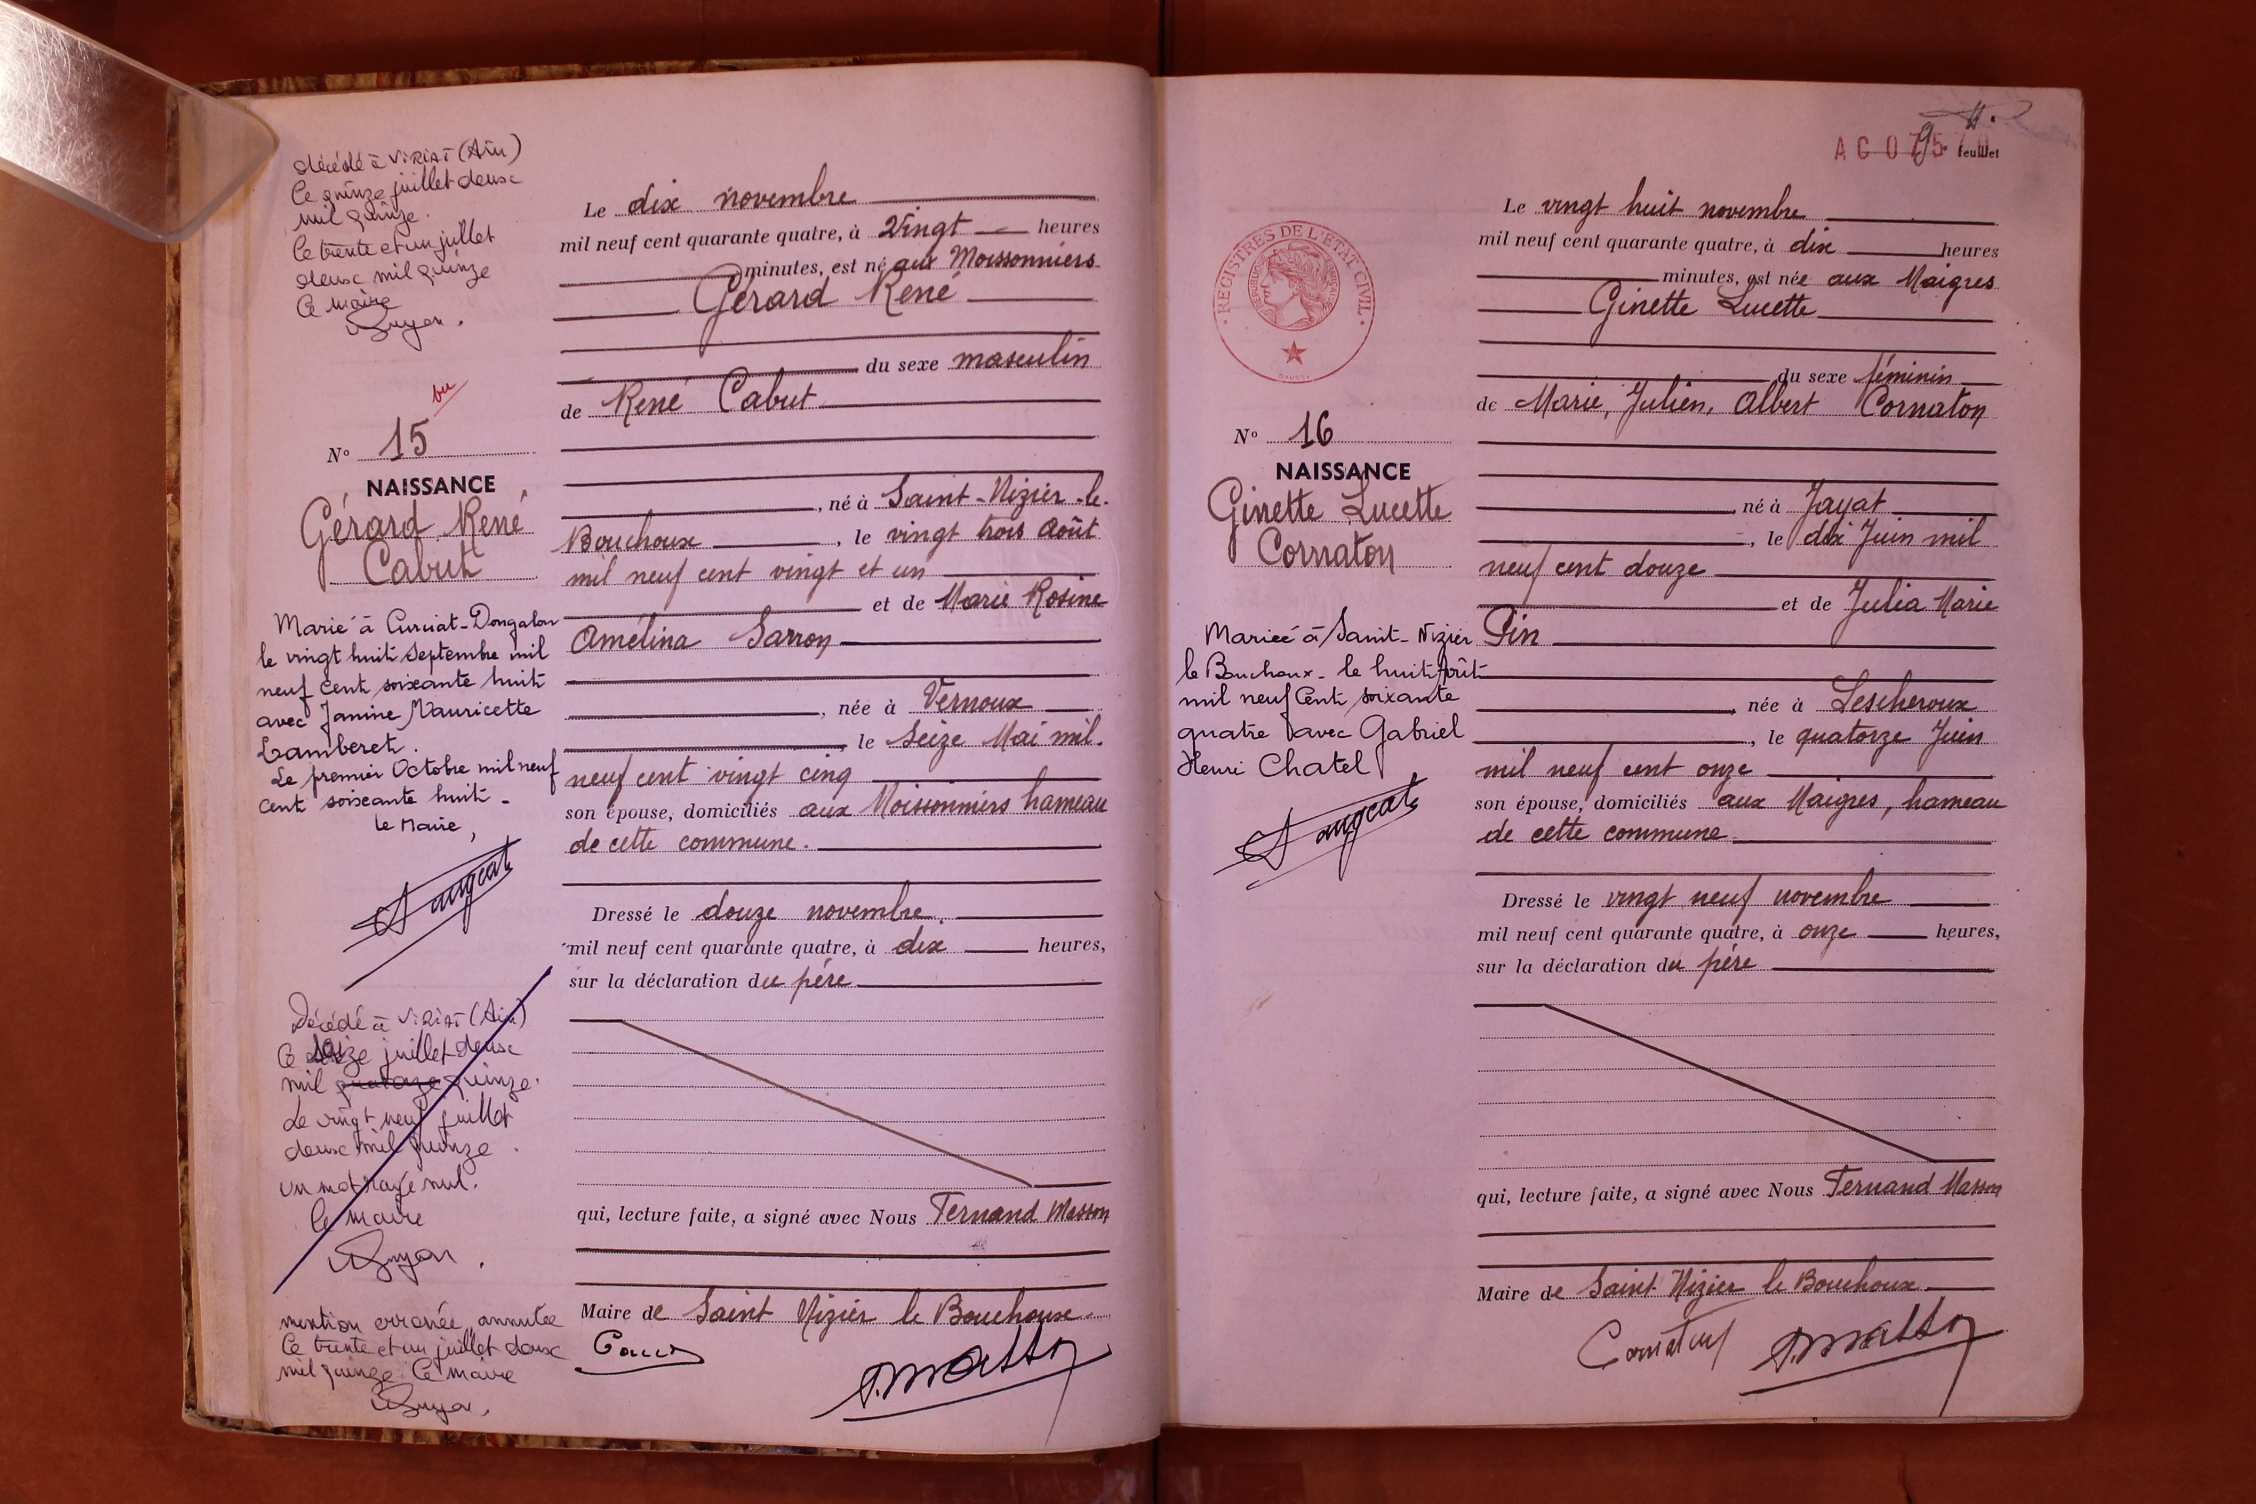 décédé à VIRIAT (Ain)
le quinze juillet deux
mil quinze.
le trente et un juillet
deux mil quinze
le maire
Guyon.
vu
N° 15
NAISSANCE
Gérard René
Cabut
Marié à Curciat-Dongalon
le vingt huit septembre mil
neuf cent soixante huit
avec Janine Mauricette
Lamberet.
Le premier Octobre mil neuf
cent soixante huit -
le Maire,
Décédé à VIRIAT (Ain)
le seize juillet deux
mil quatorze quinze.
Le vingt neuf juillet
deux mil quinze.
un mot rayé nul.
le maire
Guyon.
mention erronée annulée
le trente et un juillet deux
mil quinze le maire
Guyon.
Le dix novembre
mil neuf cent quarante quatre, à vingt heures
minutes, est né aux Moissonniers
Gérard René
du sexe masculin
de René Cabut
, né à Saint-Nizier-le-
Bouchoux , le vingt trois Août
mil neuf cent vingt et un
et de Marie Rosine
Amélina Sarron
, née à Vernoux
le seize Mai mil-
neuf cent vingt cinq
son épouse, domiciliés aux Moissonniers hameau
de cette commune.
Dressé le douze novembre.
mil neuf cent quarante quatre, à dix heures,
sur la déclaration du père
qui, lecture faite, a signé avec Nous Fernand Masson
Maire de Saint Nizier le Bouchoux
Masson
REGISTRES DE L'ETAT CIVIL
N° 16
NAISSANCE
Ginette Lucette
Cornaton
Mariée à Saint-Nizier
le Bouchoux - le huit Août
mil neuf cent soixante
quatre avec Gabriel
Henri Chatel
9e feuillet
Le vingt huit novembre
mil neuf cent quarante quatre, à dix heures
minutes, est née aux Maigres
Ginette Lucette
du sexe féminin
de Marie, Julien, Albert Cornaton
, né à Jayat
, le dix Juin mil
neuf cent douze
et de Julia Marie
Pin
, née à Lescheroux
, le quatorze Juin
mil neuf cent onze
son épouse, domiciliés aux Maigres, hameau
de cette commune.
Dressé le vingt neuf novembre
mil neuf cent quarante quatre, à onze heures,
sur la déclaration du père
qui, lecture faite, a signé avec Nous Fernand Masson
Maire de Saint Nizier le Bouchoux
Cornaton Masson